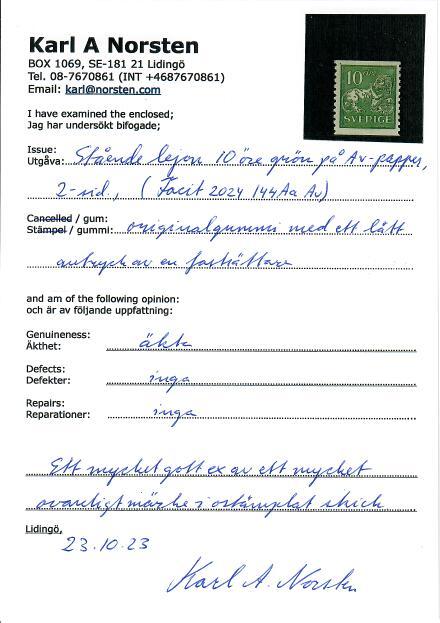 Karl A Norsten
BOX 1069, SE-181 21 Lidingö
Tel. 08-7670861 (INT +4687670861)
Email: karl@norsten.com
10 ÖRE
SVERIGE
I have examined the enclosed;
Jag har undersökt bifogade;
Issue:
Utgåva: Stående lejon 10 öre grön på Av-papper,
2-sid., (Facit 2024 144Aa Av)
Cancelled / gum:
Stämpel / gummi: originalgummi med ett lätt
avtryck av en fastsättare
and am of the following opinion:
och är av följande uppfattning:
Genuineness:
Äkthet: äkta
Defects:
Defekter: inga
Repairs:
Reparationer: inga
Ett mycket gott ex av ett mycket
ovanligt märke i ostämplat skick
Lidingö,
23.10.23
Karl A. Norsten